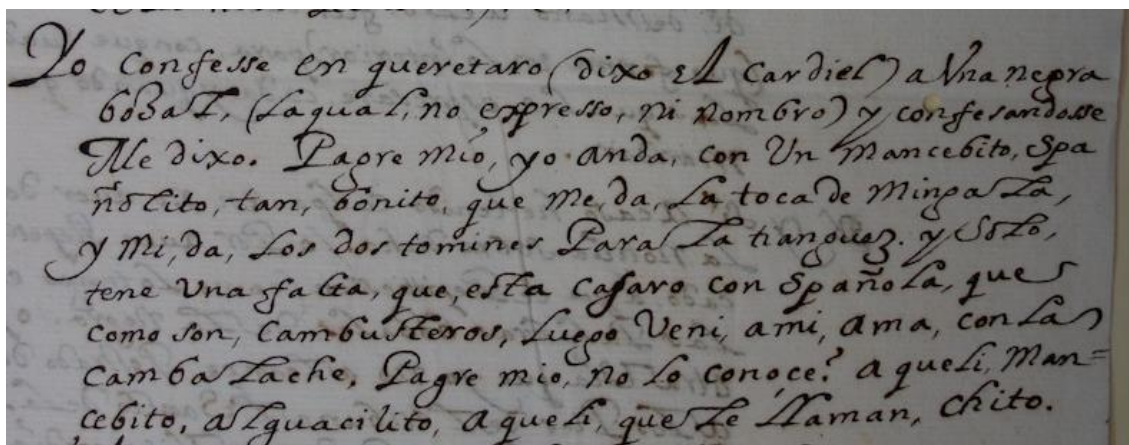 Yo Confesse en queretaro (dixo el Cardiel) a Una negra
boZal, (la qual, no expresso, ni nombro) y confesandosse
Me dixo. Pagre mio, yo anda, con Un mancebito, Spa
ñolito, tan, bonito, que me, da, la toca de Minga la,
y mi, da, los dos tomines Para la tianguez. y solo,
tene Una falta, que, esta Casaro con Spañola, que
como son, Cambusteros, luego Veni, ami, ama, con la
Cambalache. Pagre mio, no lo conoçe? a queli, Man=
cebito, alguacilito, a queli, que le llaman, chito.